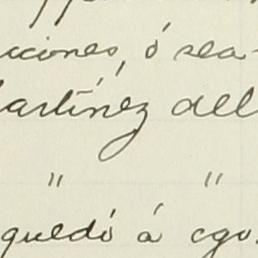 cciones, ó sea-
artínez dell
" "
quedó á cgo.